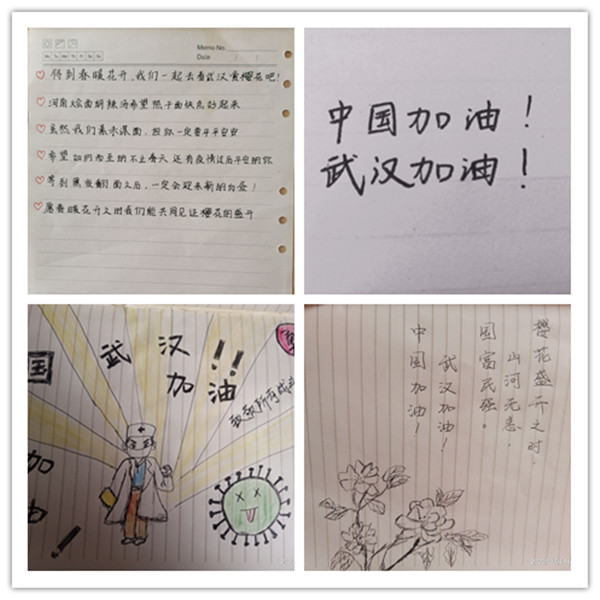 Memo No.
Date / /
Mo Tu We Th Fr Sa Su
待到春暖花开,我们一起去看武汉赏樱花吧!
河南烩面胡辣汤希望热干面快点好起来
虽然我们素未谋面,但你一定要平平安安
希望如约而至的不止春天 还有疫情过后平安的你
等到黑夜翻面之后,一定会迎来新的白昼!
愿春暖花开之时我们能共同见证樱花的盛开
中国加油!
武汉加油!
国
加
油
!
武汉!!
加油
致敬所有战
樱花盛开之时,
山河无恙,
国富民强。
武汉加油!
中国加油!